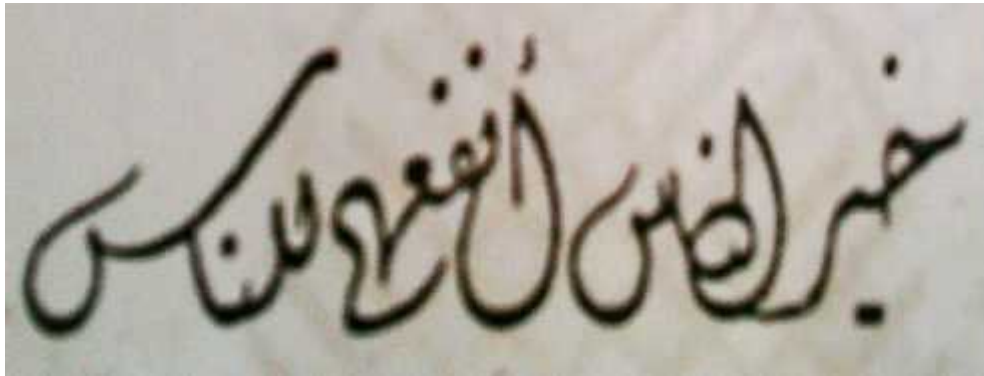 خير الناس أنفعهم للناس